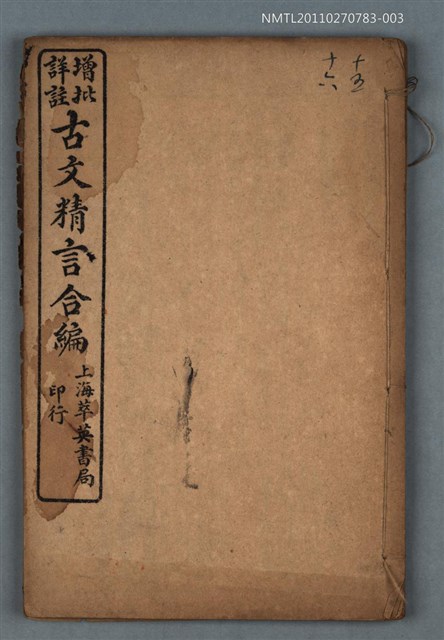 NMTL20110270783-003
十五
十六
增批
詳註
古文精言合編
上海萃英書局
印行